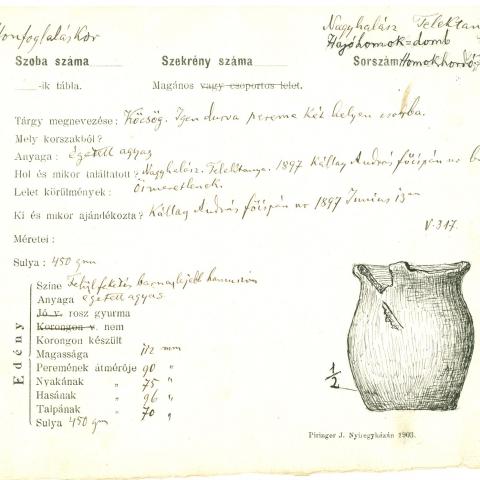 Honfoglaláskor
Nagyhalász Telektanya
Hajóhomok=domb
Szoba száma
Szekrény száma
Sorszám Homokhordó
-ik tábla.
Magános vagy csoportos lelet.
Tárgy megnevezése: Köcsög. Igen durva pereme két helyen csorba.
Mely korszakból?
Anyaga: égetett agyag
Hol és mikor találtatott? Nagyhalász. Telektanya. 1897 Kállay András főispán úr
Lelet körülmények: Ösmeretlenek.
Ki és mikor ajándékozta? Kállay András főispán úr 1897 Junius
V. 317.
Méretei:
Sulya: 450 gm
Edény
Színe Felül fekete barna lejebb
Anyaga égetett agyag
Jó v. rosz gyurma
Korongon v. nem
Korongon készült
Magassága 112 mm
Peremének átmérője 90 "
Nyakának " 75 "
Hasának " 96 "
Talpának " 70 "
Sulya 450 gm
1/2
Piringer J. Nyiregyházán 1903.